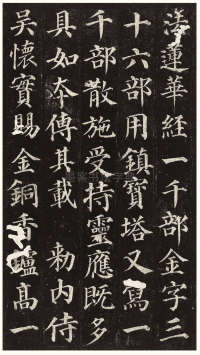 法蓮華経一千部金字三
十六部用鎮寶塔又寫一
千部散施受持靈應既多
具如本傳其載 勅内侍
吳懷實賜金銅香鑪高一